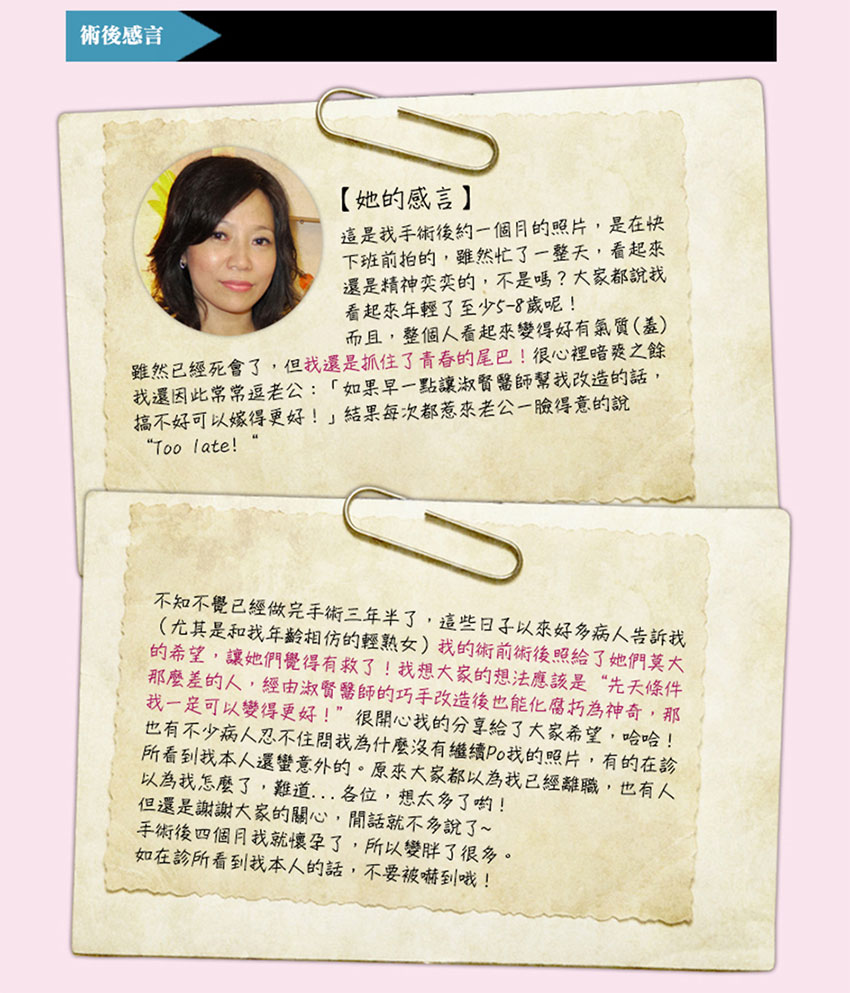 術後感言
【她的感言】
這是我手術後約一個月的照片，是在快
下班前拍的，雖然忙了一整天，看起來
還是精神奕奕的，不是嗎？大家都說我
看起來年輕了至少5-8歲呢！
而且，整個人看起來變得好有氣質(羞)
雖然已經死會了，但我還是抓住了青春的尾巴！很心裡暗爽之餘
我還因此常常逗老公：「如果早一點讓淑賢醫師幫我改造的話，
搞不好可以嫁得更好！」結果每次都惹來老公一臉得意的說
“Too late! “
不知不覺已經做完手術三年半了，這些日子以來好多病人告訴我
（尤其是和我年齡相仿的輕熟女）我的術前術後照給了她們莫大
的希望，讓她們覺得有救了！我想大家的想法應該是“先天條件
那麼差的人，經由淑賢醫師的巧手改造後也能化腐朽為神奇，那
我一定可以變得更好！” 很開心我的分享給了大家希望，哈哈！
也有不少病人忍不住問我為什麼沒有繼續Po我的照片，有的在診
所看到我本人還蠻意外的。原來大家都以為我已經離職，也有人
以為我怎麼了，難道...各位，想太多了喲！
但還是謝謝大家的關心，閒話就不多說了~
手術後四個月我就懷孕了，所以變胖了很多。
如在診所看到我本人的話，不要被嚇到哦！